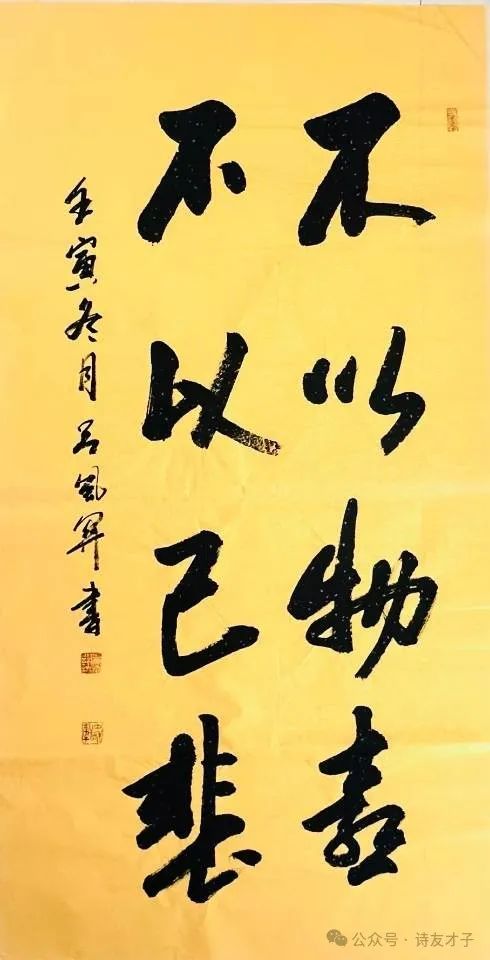 不以物喜
不以己悲
壬寅冬月 吕 书
公众号·诗友才子